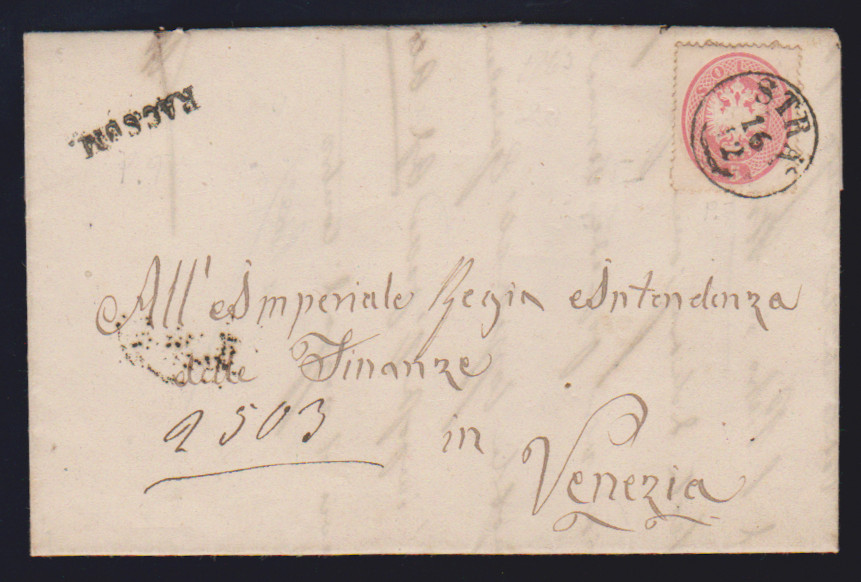 RACCOM.
STRA
16
12
SOL
All'Imperiale Regia Intendenza
delle Finanze
2503
in
Venezia